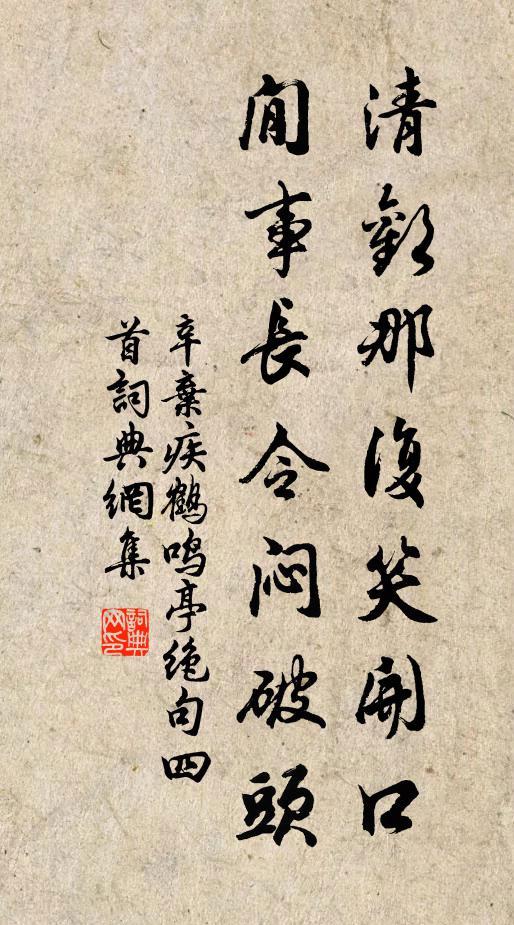 清歡那復笑開口
閒事長令悶破頭
辛棄疾鶴鳴亭绝句四
首詞典網集
詞典
网印